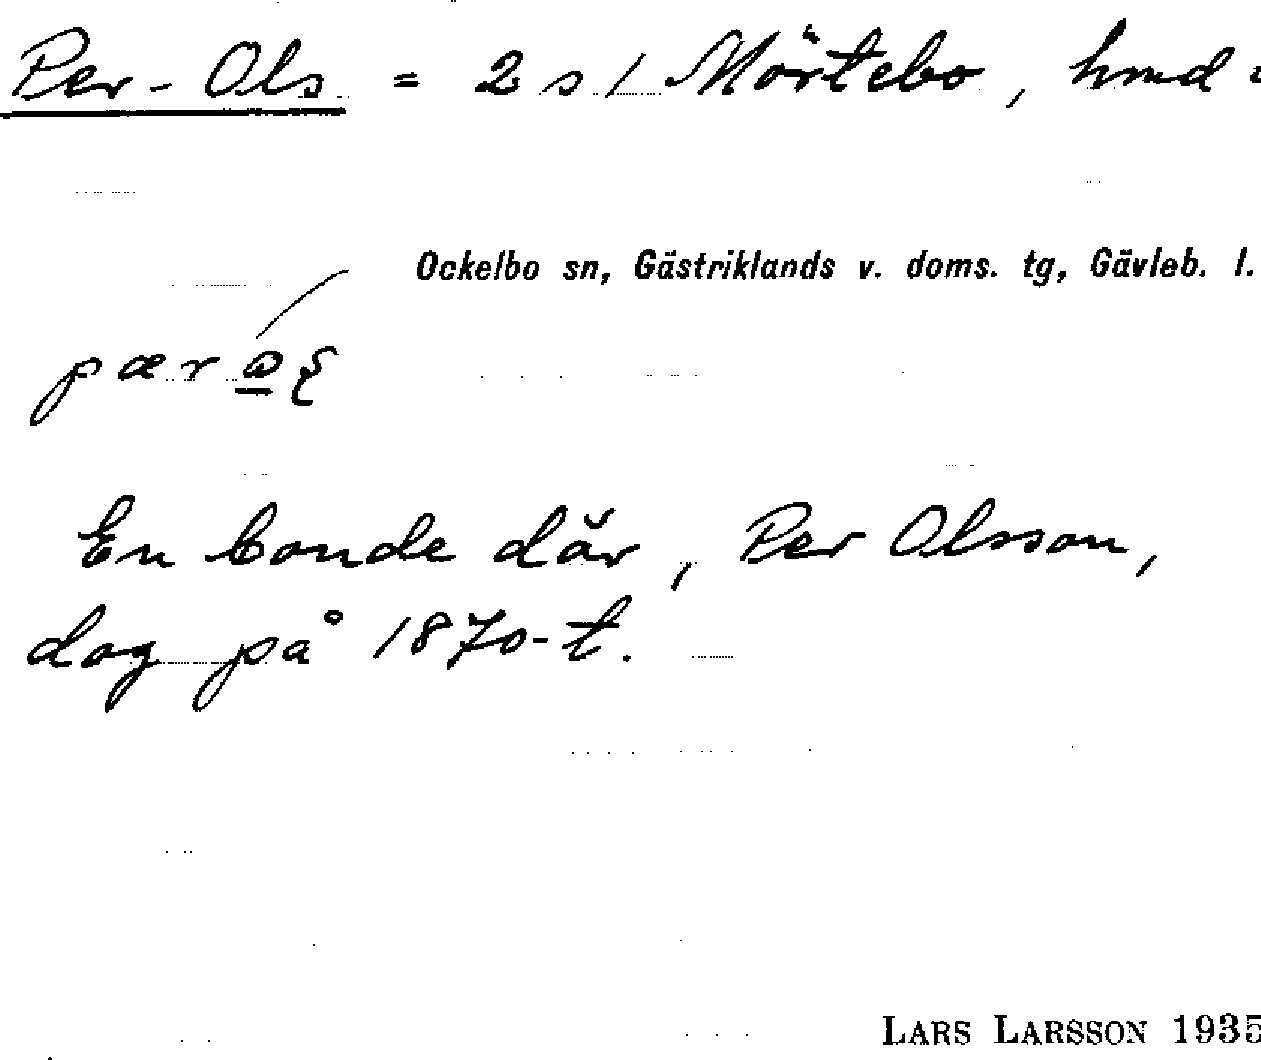 Per-Ols = 2 s 1 Mörtebo, hmd
Ockelbo sn, Gästriklands v. doms. tg, Gävleb. l.
En bonde där, Per Olsson,
dog på 1870-t.
LARS LARSSON 1935